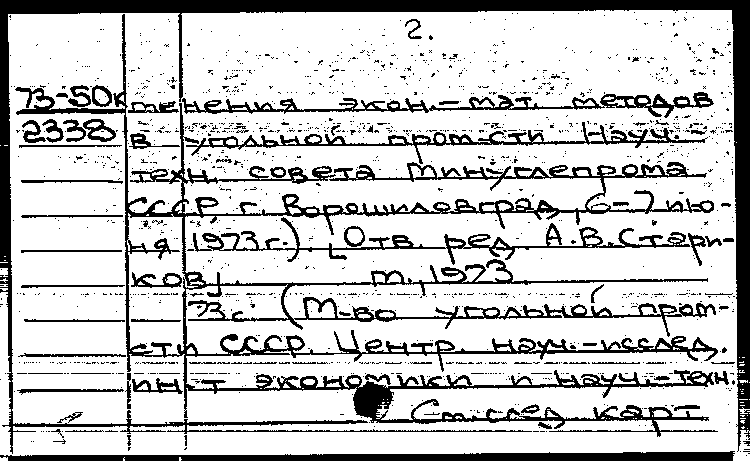 2.
73-50к тенения экон.-мат. методов
2338 в угольной пром-сти Науч.-
техн. совета Минуглепрома
СССР, г. Ворошиловград, 6-7 ию-
ня 1973г.). [Отв. ред. А.В.Стари-
ков]. М., 1973.
73с. (М-во угольной пром-
сти СССР. Центр. науч.-исслед.
ин-т экономики и науч.-техн.
См.след карт